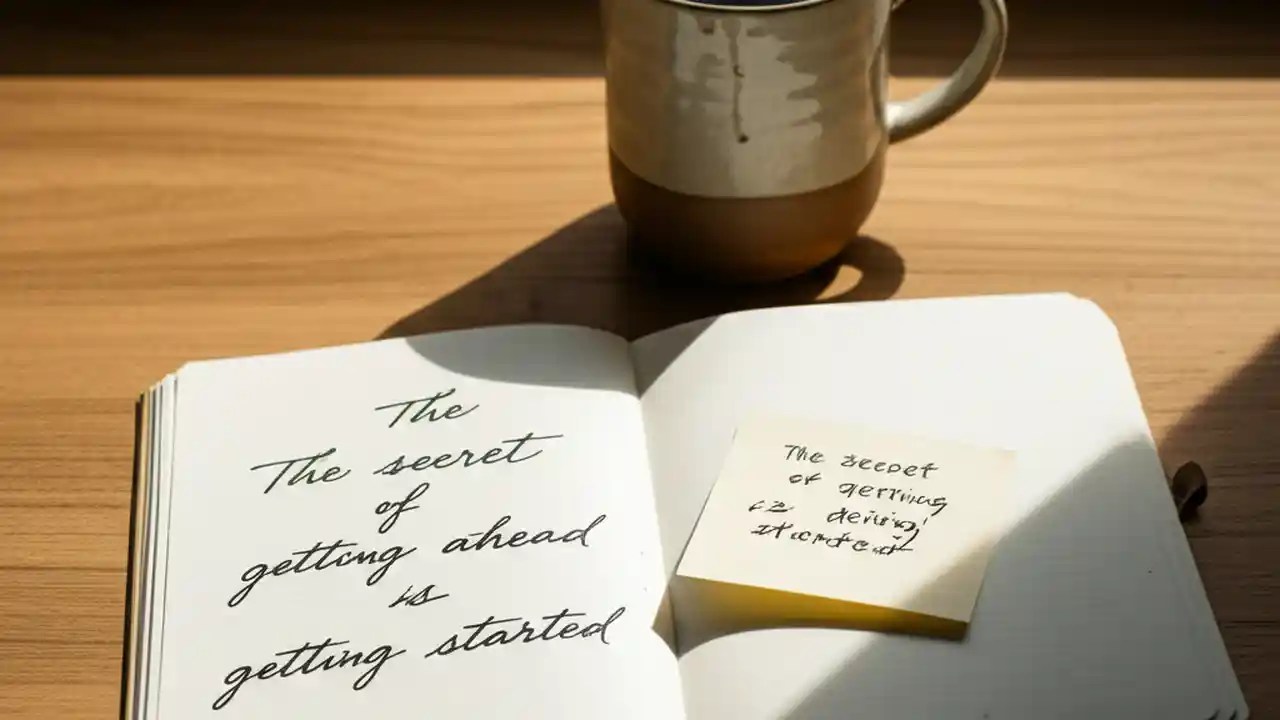 The
The secret
of
getting ahead
is
getting started
The secret
of gerring